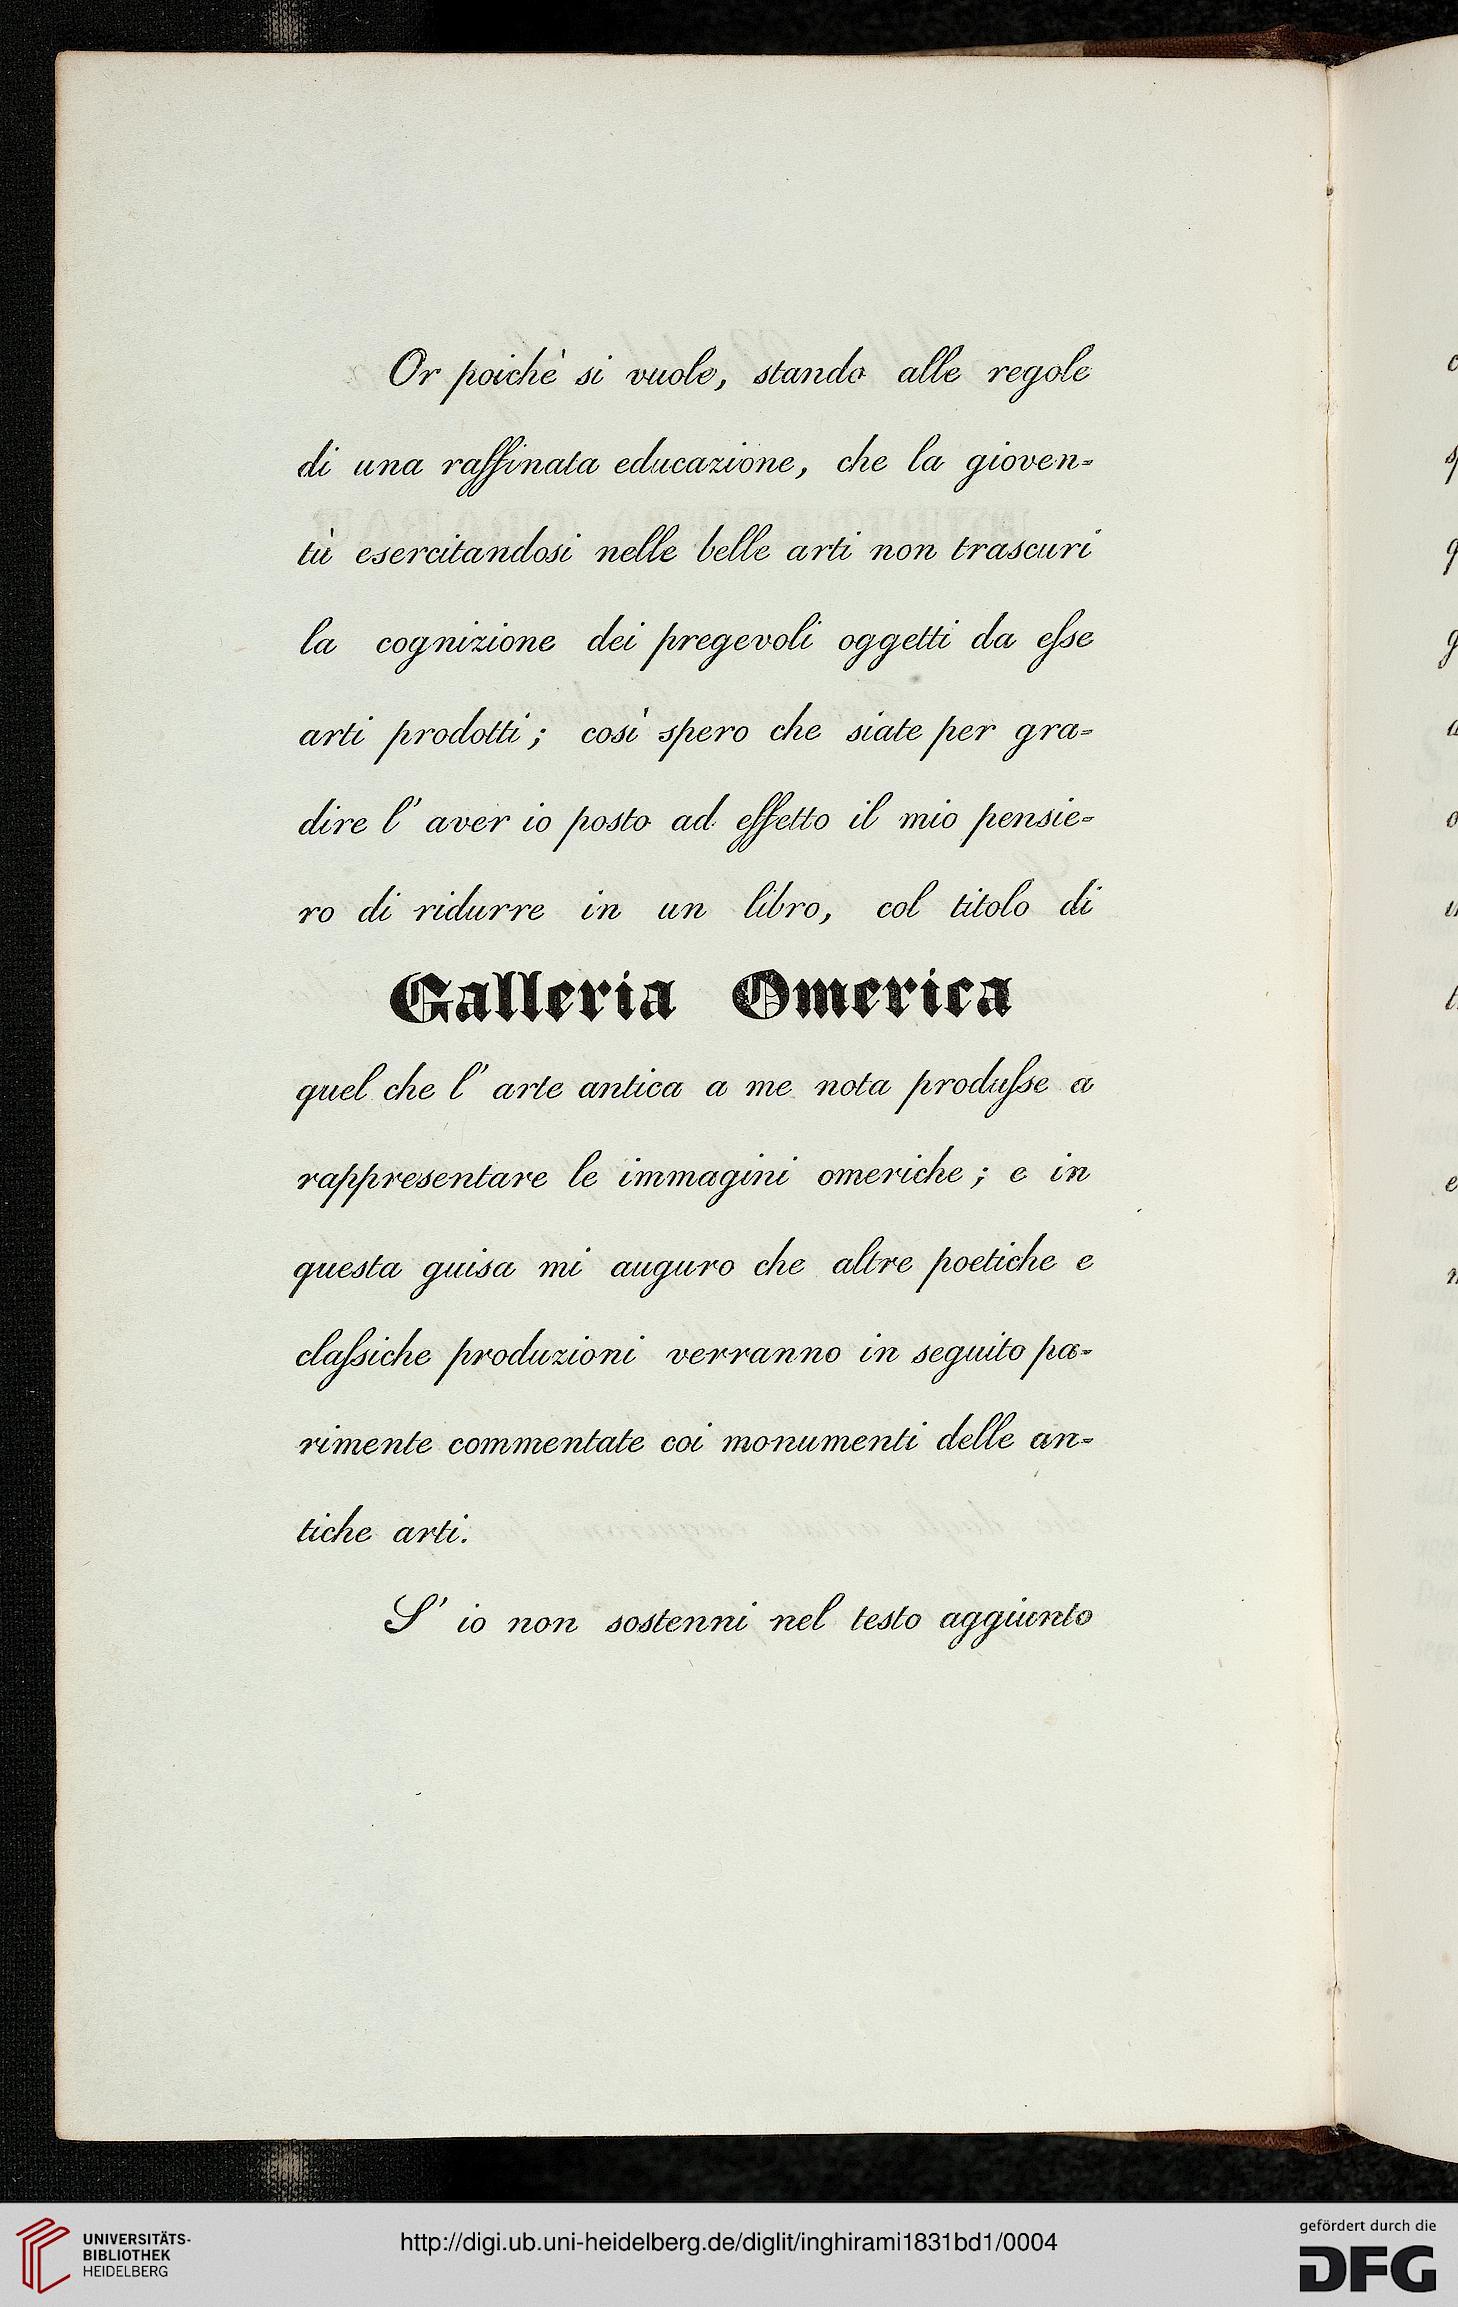 Or poichè si vuole, stando alle regole
di una raffinata educazione, che la gioven=
tù esercitandosi nelle belle arti non trascuri
la cognizione dei pregevoli oggetti da eſse
arti prodotti; così spero che siate per gra=
dire l' aver io posto ad effetto il mio pensie=
ro di ridurre in un libro, col titolo di
Galleria Omerica
quel che l' arte antica a me nota produſse a
rappresentare le immagini omeriche; e in
questa guisa mi auguro che altre poetiche e
claſsiche produzioni verranno in seguito pa=
rimente commentate coi monumenti delle an=
tiche arti.
S' io non sostenni nel testo aggiunto
UNIVERSITÄTS-
BIBLIOTHEK
HEIDELBERG
http://digi.ub.uni-heidelberg.de/diglit/inghirami1831bd1/0004
gefördert durch die
DFG